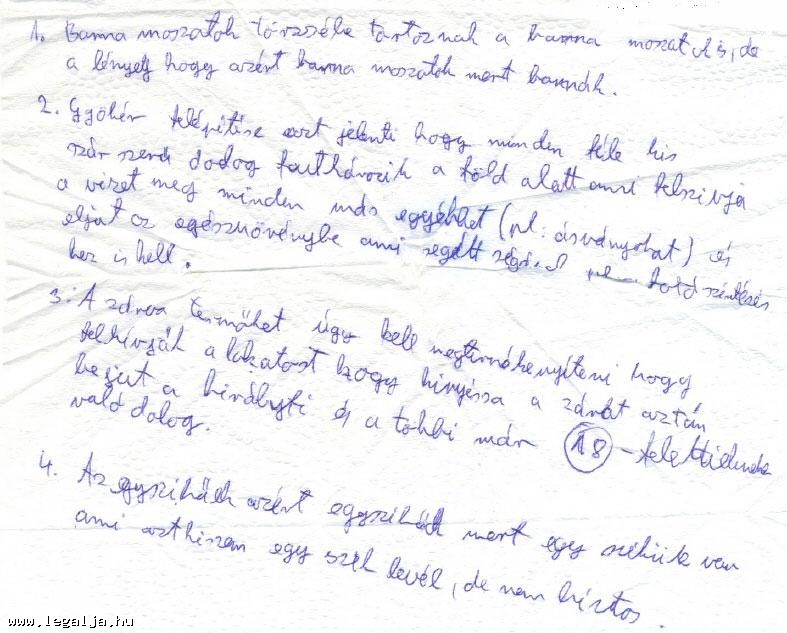 1. Barna moszatok törzsébe tartoznak a barna moszat is, de
a lényeg hogy azért barna moszatok mert barnák.
2. Gyökér felépítése azt jelenti hogy minden féle kis
szár szerű dodog találhározik a föld alatt ami felszívja
a vizet meg minden más egyébket (pl: ásványokat) és
eljut az egésznövénybe ami segitt
hez is kell.
3. A zárva termőket úgy kell megtermékenyíteni hogy
felhívják a lakatost hogy kinyissa a zárat aztán
bejut a és a többi már 18-felettieknek
való dolog.
4. Az egyszikűek azért egyszikűek mert egy székük van
ami azthiszem egy szék levél, de nem biztos
www.legalja.hu